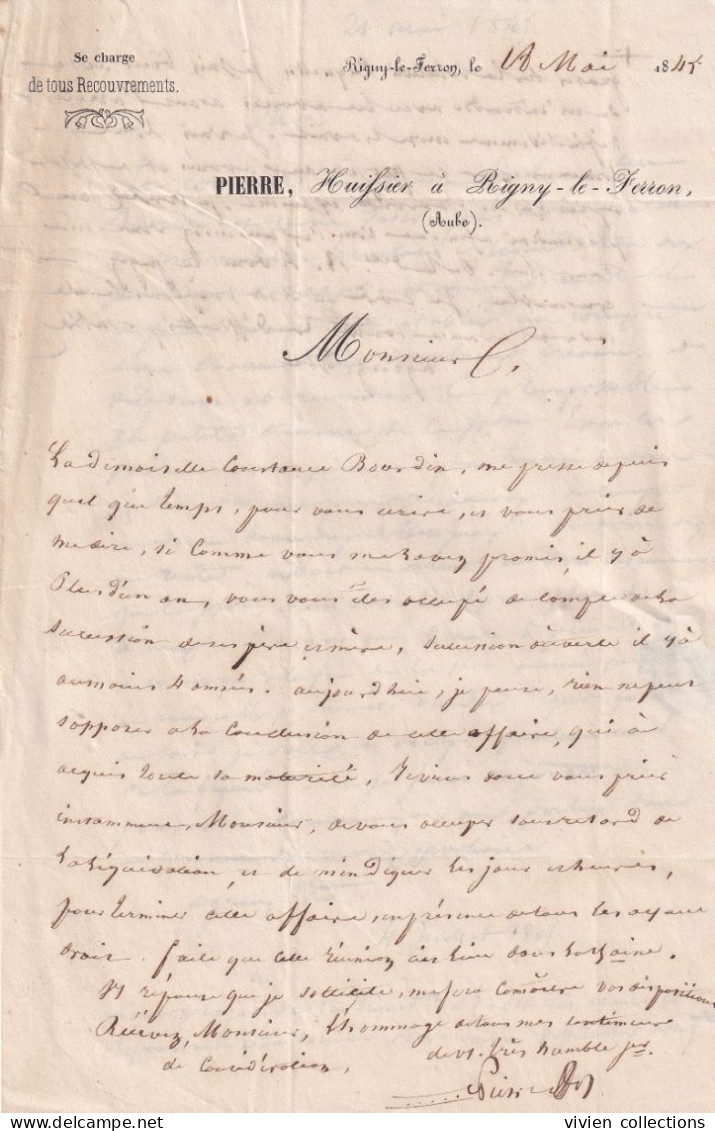 Se charge
de tous Recouvrements.
Rigny-le-Ferron, le 18 Mai 1845
PIERRE, Huissier à Rigny-le-Ferron,
(Aube).
Monsieur
La demoiselle Constance Bourdin, me presse depuis
quel que temps, pour vous écrire, et vous prier de
me dire, si comme vous me l'avez promis, il y à
Plus d'un an, vous vous êtes occupé de compte de la
succession de ses père et mère, succession ouverte il y à
au moins 4 années. aujourd'hui, je pense, rien ne peut
s'opposer a la conclusion de cette affaire, qui à
acquis toute sa maturité, donc vous prier
instamment, Monsieur, de vous occuper sans retard de
la liquidation, et de m'indiquer les jour et heures,
pour terminer cette affaire, en présence de tous les ayant
droit. faite que cette réunion ait lieu dans la h.aine.
réponse que je sollicite, me fera connoître vos dispositions
Recevez, Monsieur, l'hommage de tous mes sentimens
de considération, votre très humble
Pierre
Delcampe.net
vivien collections